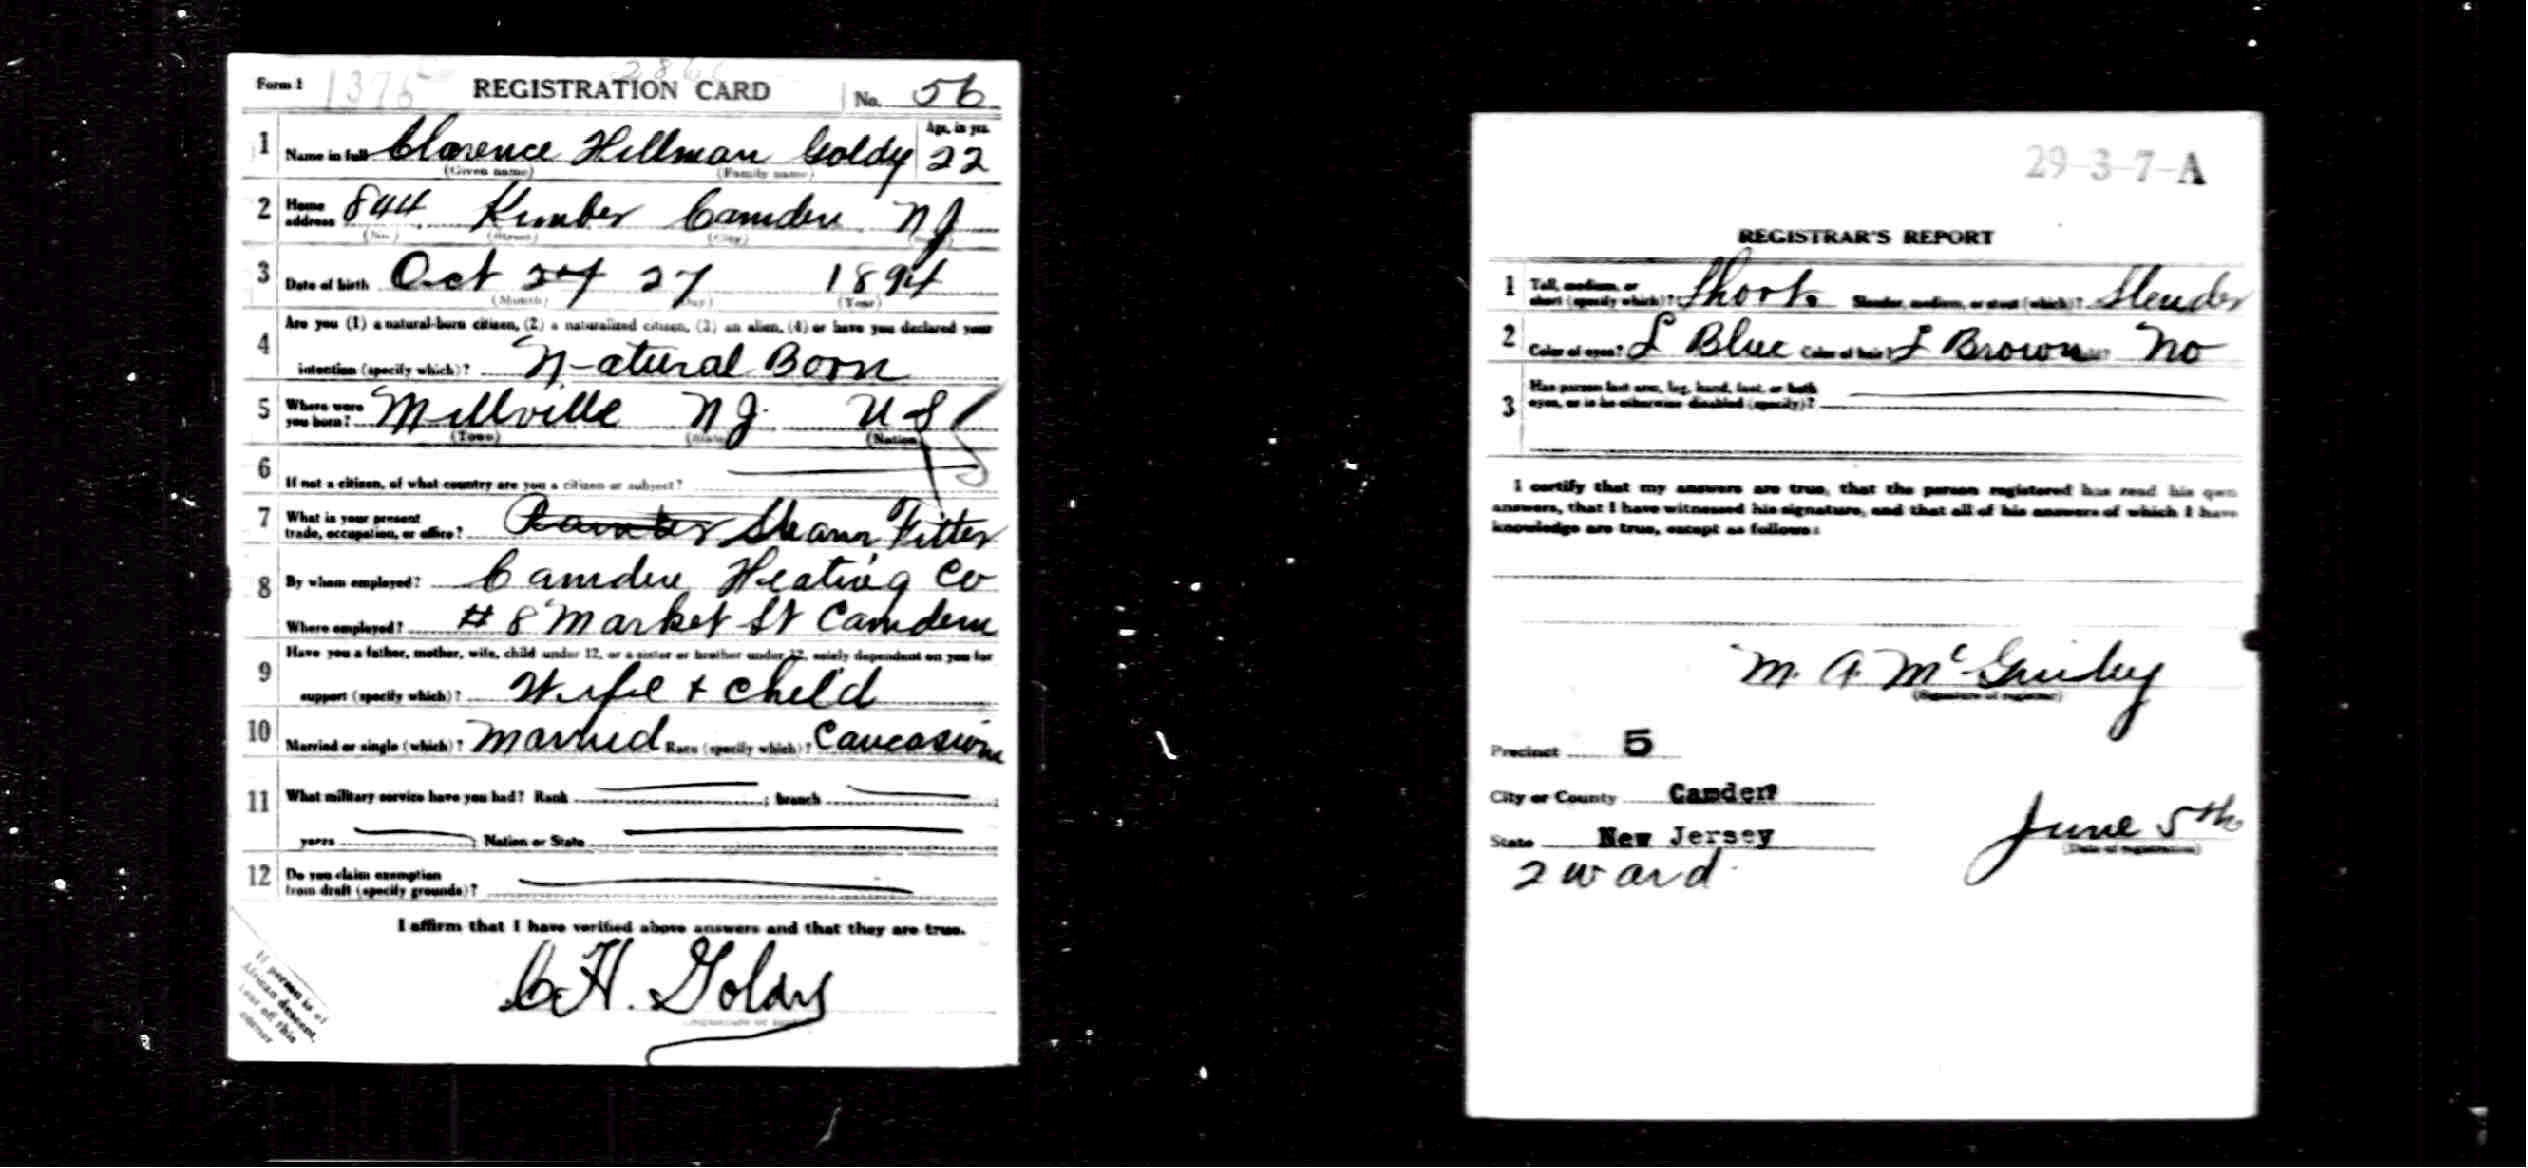 Form 1 1375 REGISTRATION CARD No. 56
1 Name in full Clarence Hillman Goldy Age, in yrs. 22
(Given name) (Family name)
2 Home address 844 Kimber Camden NJ
(No.) (Street) (City)
3 Date of birth Oct 24 27 1894
(Month) (Day) (Year)
4 Are you (1) a natural-born citizen, (2) a naturalized citizen, (3) an alien, (4) or have you declared your
intention (specify which)? Natural Born
5 Where were you born? Millville NJ. US
(Town) (State) (Nation)
6 If not a citizen, of what country are you a citizen or subject?
7 What is your present trade, occupation, or office? Steam Fitter
8 By whom employed? Camden Heating Co
Where employed? # 8 Market St Camden
9 Have you a father, mother, wife, child under 12, or a sister or brother under 12, solely dependent on you for
support (specify which)? Wife + Child
10 Married or single (which)? Married Race (specify which)? Caucasion
11 What military service have you had? Rank ; branch ;
years ; Nation or State
12 Do you claim exemption from draft (specify grounds)?
I affirm that I have verified above answers and that they are true.
C H. Goldy
If person is of
African descent,
tear off this
corner
29-3-7-A
REGISTRAR'S REPORT
1 Tall, medium, or short (specify which)? Short Slender, medium, or stout (which)? Slender
2 Color of eyes? L Blue Color of hair? L Brown No
3 Has person lost arm, leg, hand, foot, or both
eyes, or is he otherwise disabled (specify)?
I certify that my answers are true, that the person registered has read his own
answers, that I have witnessed his signature, and that all of his answers of which I have
knowledge are true, except as follows:
M. A. Mc
(Signature of registrar)
Precinct 5
City or County Camden
State New Jersey
June 5th
(Date of registration)
2 ward